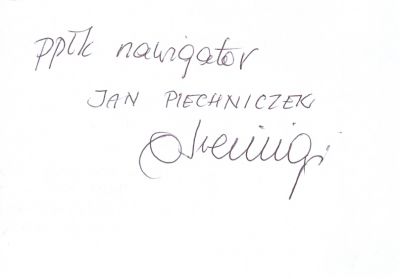 ppłk nawigator
JAN PIECHNICZEK